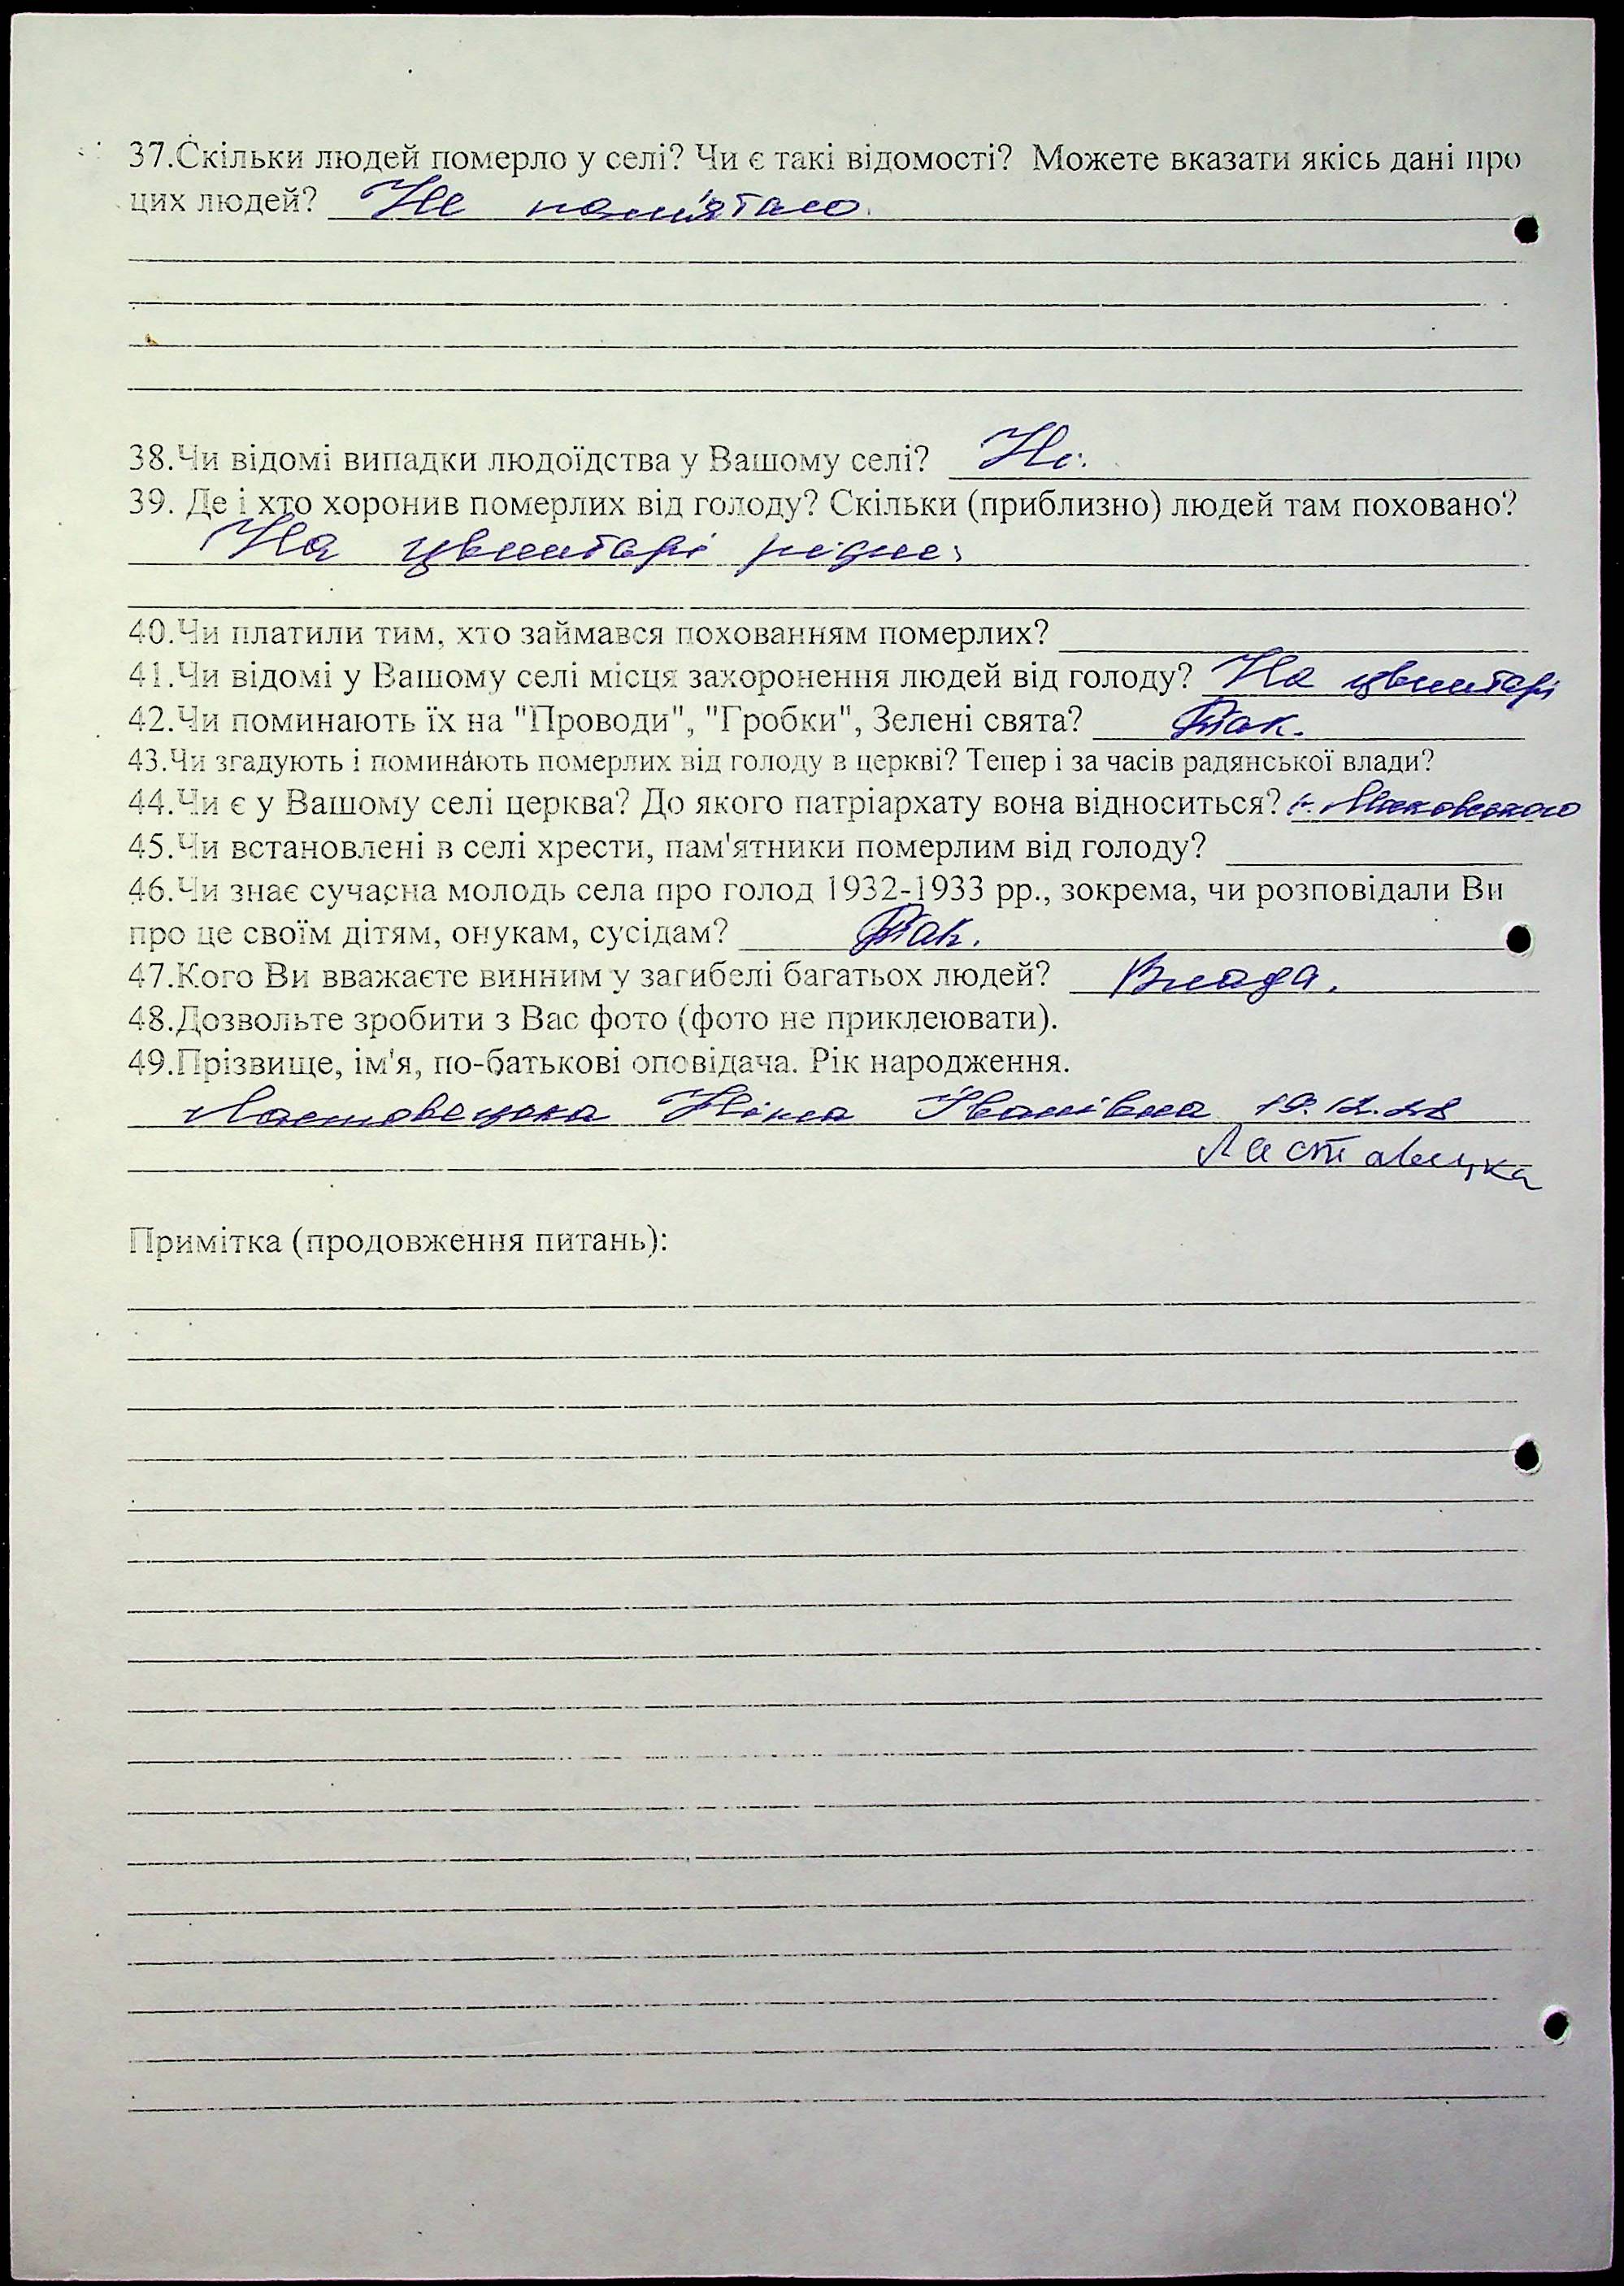 37.Скільки людей померло у селі? Чи є такі відомості? Можете вказати якісь дані про
цих людей? Не пам'ятаю.
38.Чи відомі випадки людоїдства у Вашому селі? Ні.
39. Де і хто хоронив померлих від голоду? Скільки (приблизно) людей там поховано?
На цвинтарі рідне.
40.Чи платили тим, хто займався похованням померлих?
41.Чи відомі у Вашому селі місця захоронення людей від голоду? На цвинтарі
42.Чи поминають їх на "Проводи", "Гробки", Зелені свята? Так.
43.Чи згадують і поминають померлих від голоду в церкві? Тепер і за часів радянської влади?
44.Чи є у Вашому селі церква? До якого патріархату вона відноситься? Московського
45.Чи встановлені в селі хрести, пам'ятники померлим від голоду?
46.Чи знає сучасна молодь села про голод 1932-1933 рр., зокрема, чи розповідали Ви
про це своїм дітям, онукам, сусідам? Так.
47.Кого Ви вважаєте винним у загибелі багатьох людей? Влада.
48.Дозвольте зробити з Вас фото (фото не приклеювати).
49.Прізвище, ім'я, по-батькові оповідача. Рік народження.
Ластовецька Ніна Іванівна 19.12.28
Ластовецка
Примітка (продовження питань):